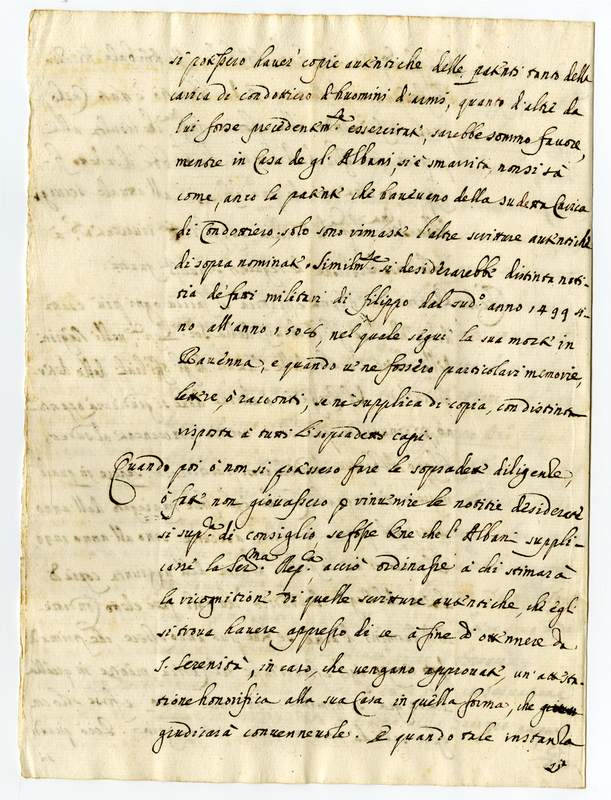 si potessero hauer copie autentiche delle patenti tanto della
carica di condottiero d'huomini d'armi, quanto d'altre da
lui forse precedentem.te essercitate, sarebbe sommo fauore,
mentre in Casa de gl'Albani, si è smarrita, non si sà
come, anco la patente che haueuano della sudetta Carica
di Condottiero, solo sono rimaste l'altre scritture autentiche
di sopra nominate. Similm.te si desiderarebbe distinta noti-
tia de fatti militari di filippo dal sud.o anno 1499 si-
no all'anno 1506, nel quale seguì la sua morte in
Rauenna, e quando ue ne fossero particolari memorie,
lettere, ò racconti, se ne supplica di copia, con distinta
risposta à tutti li sopradetti capi.
Quando poi ò non si potessero fare le sopradette diligenze,
ò fatte non giouassero p rinuenire le notitie desiderate
si sup.ca di consiglio, se fosse bene che l'Alban suppli-
casse la Ser.ma Rep.ca, acciò ordinasse à chi stimarà
la ricognitione di quelle scritture autentiche, che egli
si troua hauere appresso di se à fine di ottennere da
S. Serenità, in caso, che uengano approuate, un'attesta-
tione honorifica alla sua Casa in quella forma, che
giudicarà conuenneuole. E quando tale instanza